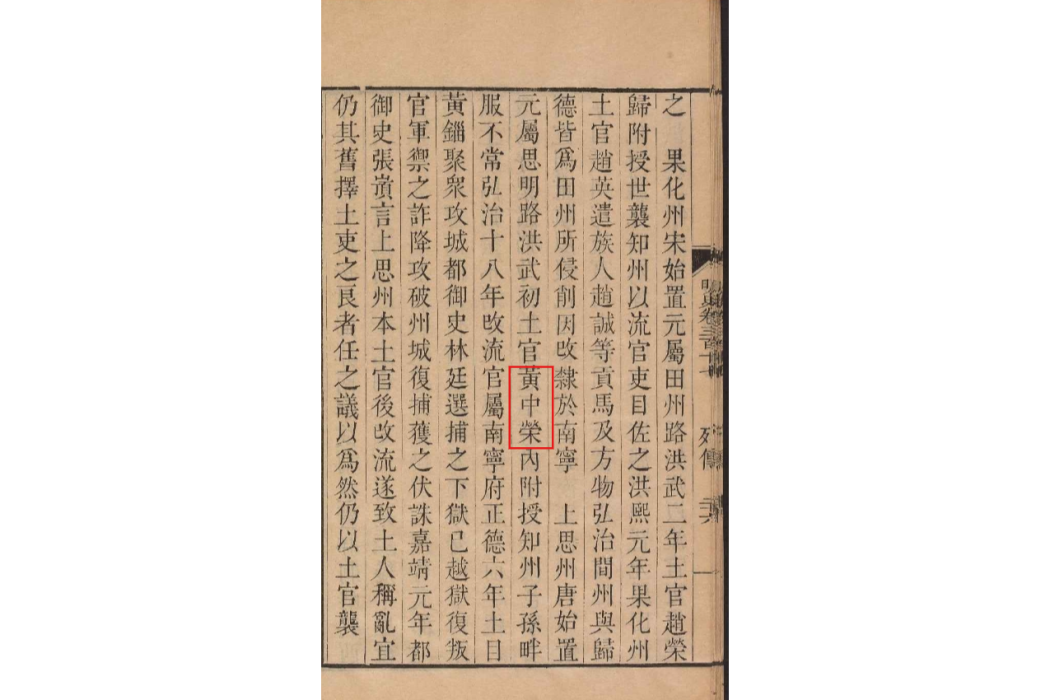 之　果化州宋始置元屬田州路洪武二年土官趙榮
歸附授世襲知州以流官吏目佐之洪熙元年果化州
土官趙英遣族人趙誠等貢馬及方物弘治間州與歸
德皆爲田州所侵削因改隸於南寧　上思州唐始置
元屬思明路洪武初土官黃中榮內附授知州子孫畔
服不常弘治十八年改流官屬南寧府正德六年土目
黃錙聚眾攻城都御史林廷選捕之下獄已越獄復叛
官軍禦之詐降攻破州城復捕獲之伏誅嘉靖元年都
御史張嵿言上思州本土官後改流遂致土人稱亂宜
仍其舊擇土吏之良者任之議以爲然仍以土官襲
列傳